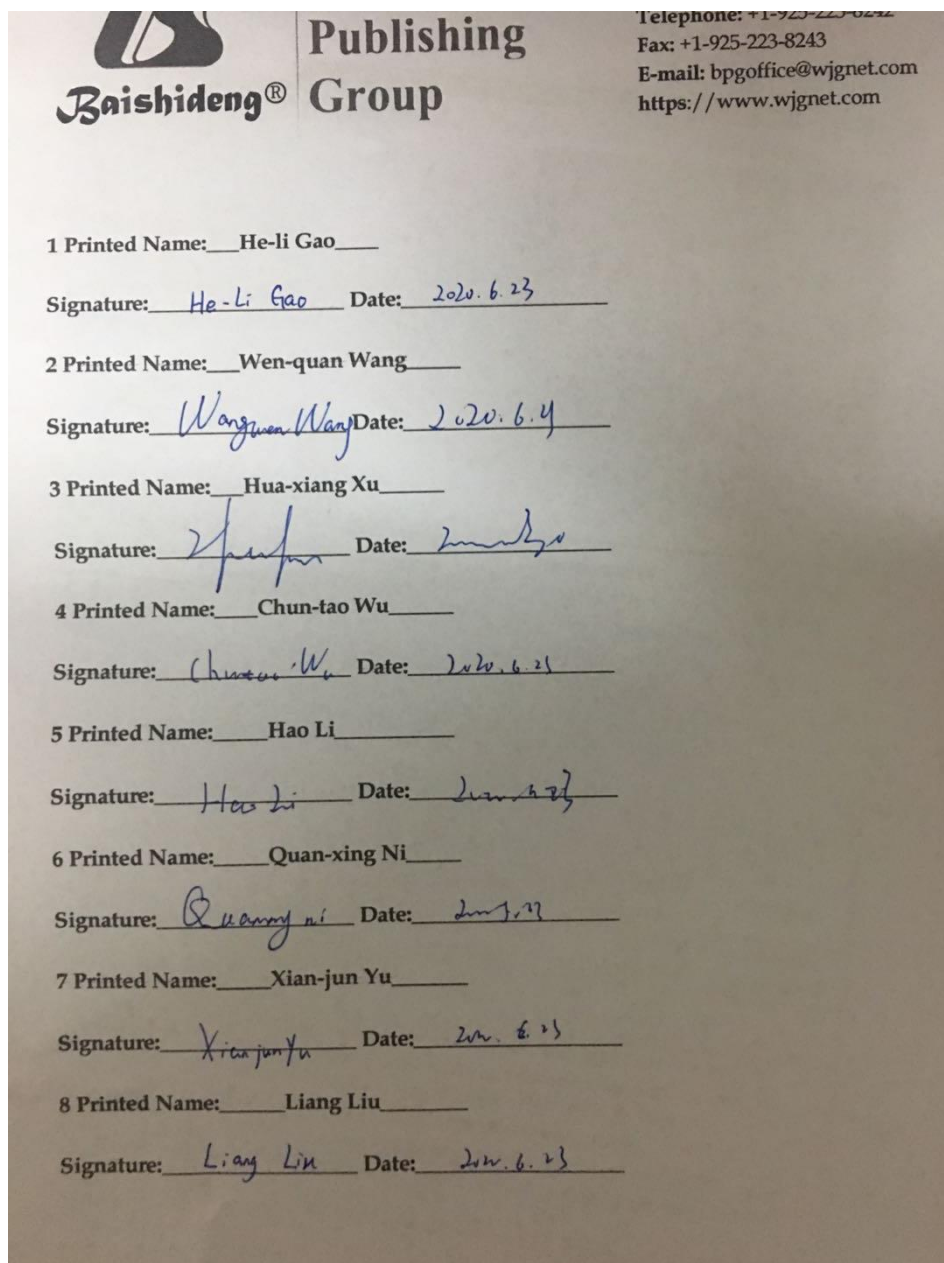 Publishing
Telephone: +1-925-223-8242
Fax: +1-925-223-8243
Baishideng® Group
E-mail: bpgoffice@wjgnet.com
https://www.wjgnet.com
1 Printed Name:___He-li Gao____
Signature: He-Li Gao Date: 2020.6.23
2 Printed Name:___Wen-quan Wang_____
Signature: Wang Date:
3 Printed Name:___Hua-xiang Xu______
Signature: Date:
4 Printed Name:____Chun-tao Wu______
Signature: Date: 2020.6.23
5 Printed Name:_____Hao Li___________
Signature: Hao Li Date:
6 Printed Name:_____Quan-xing Ni_____
Signature: ni Date:
7 Printed Name:_____Xian-jun Yu_______
Signature: Xianjun Yu Date:
8 Printed Name:______Liang Liu________
Signature: Liang Liu Date: